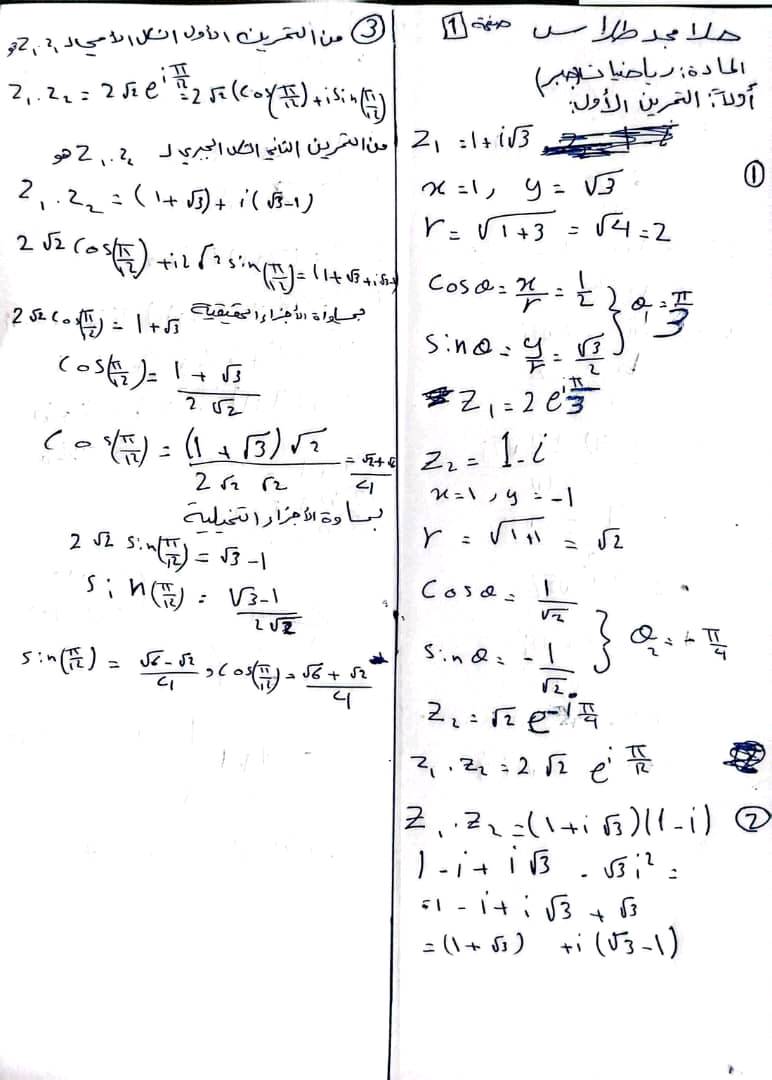 حلا مجد طلاس صفحة 1
المادة: رياضيات (جبر)
أولاً: التمرين الأول:
① Z₁ = 1 + i√3
x = 1, y = √3
r = √(1+3) = √4 = 2
cosθ = x/r = 1/2
sinθ = y/r = √3/2 } θ₁ = π/3
Z₁ = 2 e^(iπ/3)
Z₂ = 1 - i
x = 1, y = -1
r = √(1+1) = √2
cosθ = 1/√2
sinθ = -1/√2 } θ₂ = -π/4
Z₂ = √2 e^(-iπ/4)
Z₁ . Z₂ = 2 √2 e^(iπ/12)
② Z₁ . Z₂ = (1 + i√3)(1 - i)
1 - i + i√3 - √3 i² =
= 1 - i + i√3 + √3
= (1 + √3) + i(√3 - 1)
③ من التمرين الأول الشكل الأسي لـ Z₁ . Z₂ هو
Z₁ . Z₂ = 2√2 e^(iπ/12) = 2√2 (cos(π/12) + i sin(π/12))
من التمرين الثاني الشكل الجبري لـ Z₁ . Z₂ هو
Z₁ . Z₂ = (1 + √3) + i(√3 - 1)
2√2 cos(π/12) + i2√2 sin(π/12) = (1 + √3 + i√3
بمساواة الأجزاء الحقيقية
2√2 cos(π/12) = 1 + √3
cos(π/12) = (1 + √3)/(2√2)
cos(π/12) = ((1 + √3)√2)/(2√2 √2) = (√2 + √6)/4
بمساوة الأجزاء التخيلية
2√2 sin(π/12) = √3 - 1
sin(π/12) = (√3 - 1)/(2√2)
sin(π/12) = (√6 - √2)/4 , cos(π/12) = (√6 + √2)/4